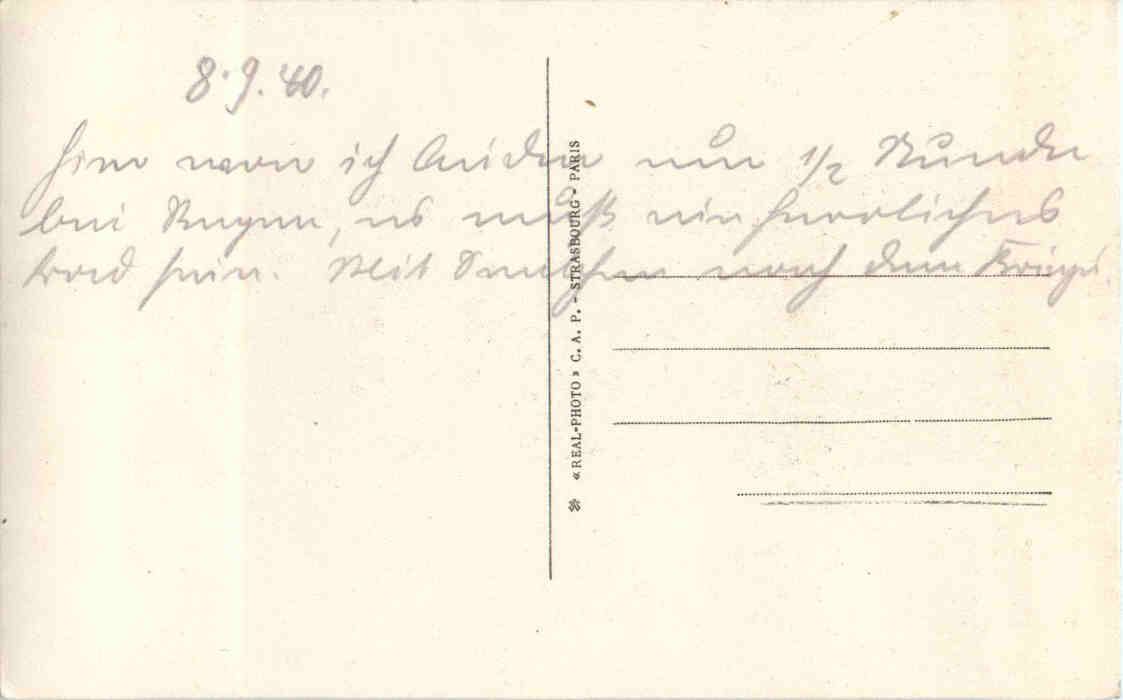 8.9.40.
Hier war ich leider nur 1/2 Stunde
bei Regen, es muß ein herrliches
Bad sein. Mit Dr nach dem Kriege.
«REAL-PHOTO» C. A. P. - STRASBOURG - PARIS